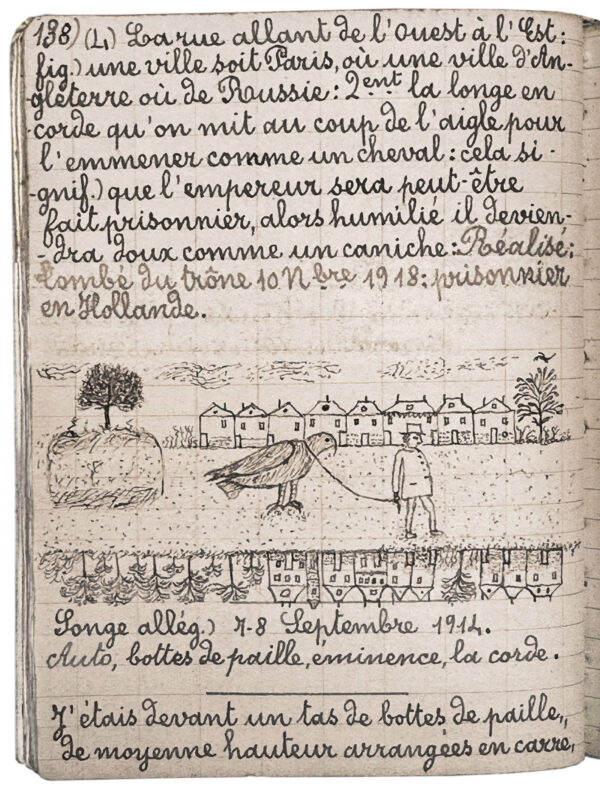 138) (L) La rue allant de l'Ouest à l'Est:
fig.) une ville soit Paris, où une ville d'An-
gleterre où de Russie: 2ent la longe en
corde qu'on mit au coup de l'aigle pour
l'emmener comme un cheval: cela si-
-gnif.) que l'empereur sera peut-être
fait prisonnier, alors humilié il devien-
-dra doux comme un caniche: Réalisé:
tombé du trône 10 Nbre 1918: prisonnier
en Hollande.
Songe allég.) 7-8 Septembre 1914.
Auto, bottes de paille, éminence, la corde.
J'étais devant un tas de bottes de paille,,
de moyenne hauteur arrangées en carre,